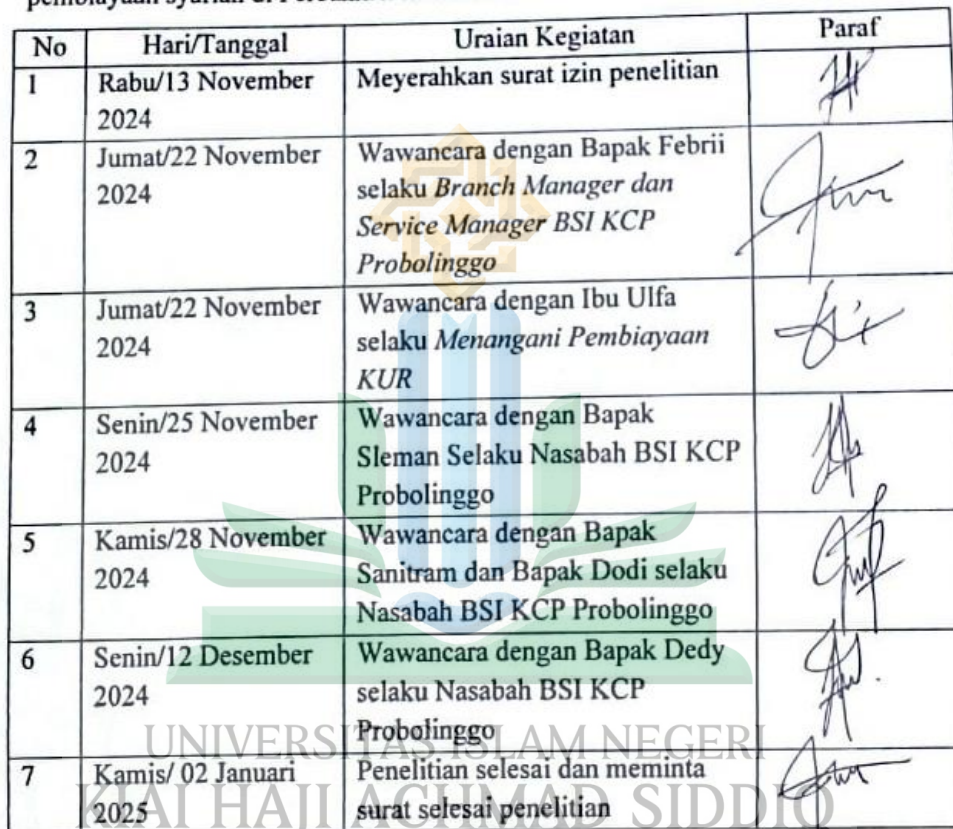 No Hari/Tanggal Uraian Kegiatan Paraf
1 Rabu/13 November Meyerahkan surat izin penelitian
2024
2 Jumat/22 November Wawancara dengan Bapak Febrii
2024 selaku Branch Manager dan
Service Manager BSI KCP
Probolinggo
3 Jumat/22 November Wawancara dengan Ibu Ulfa
2024 selaku Menangani Pembiayaan
KUR
4 Senin/25 November Wawancara dengan Bapak
2024 Sleman Selaku Nasabah BSI KCP
Probolinggo
5 Kamis/28 November Wawancara dengan Bapak
2024 Sanitram dan Bapak Dodi selaku
Nasabah BSI KCP Probolinggo
6 Senin/12 Desember Wawancara dengan Bapak Dedy
2024 selaku Nasabah BSI KCP
Probolinggo
7 Kamis/ 02 Januari Penelitian selesai dan meminta
2025 surat selesai penelitian
UNIVERSITAS ISLAM NEGERI
KIAI HAJI ACHMAD SIDDIQ